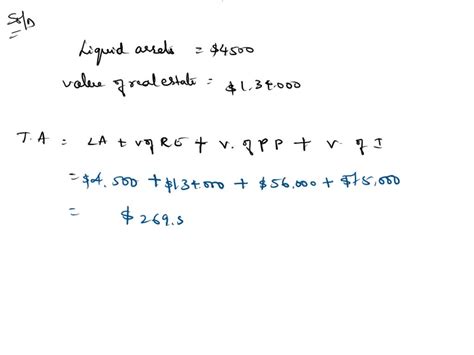 Sol^n
Liquid assets = $4500
value of real estate = $1,34,000
T.A = LA + v of RE + v. of P P + v. of I
= $4,500 + $134,000 + $56,000 + $75,000
= $269.5